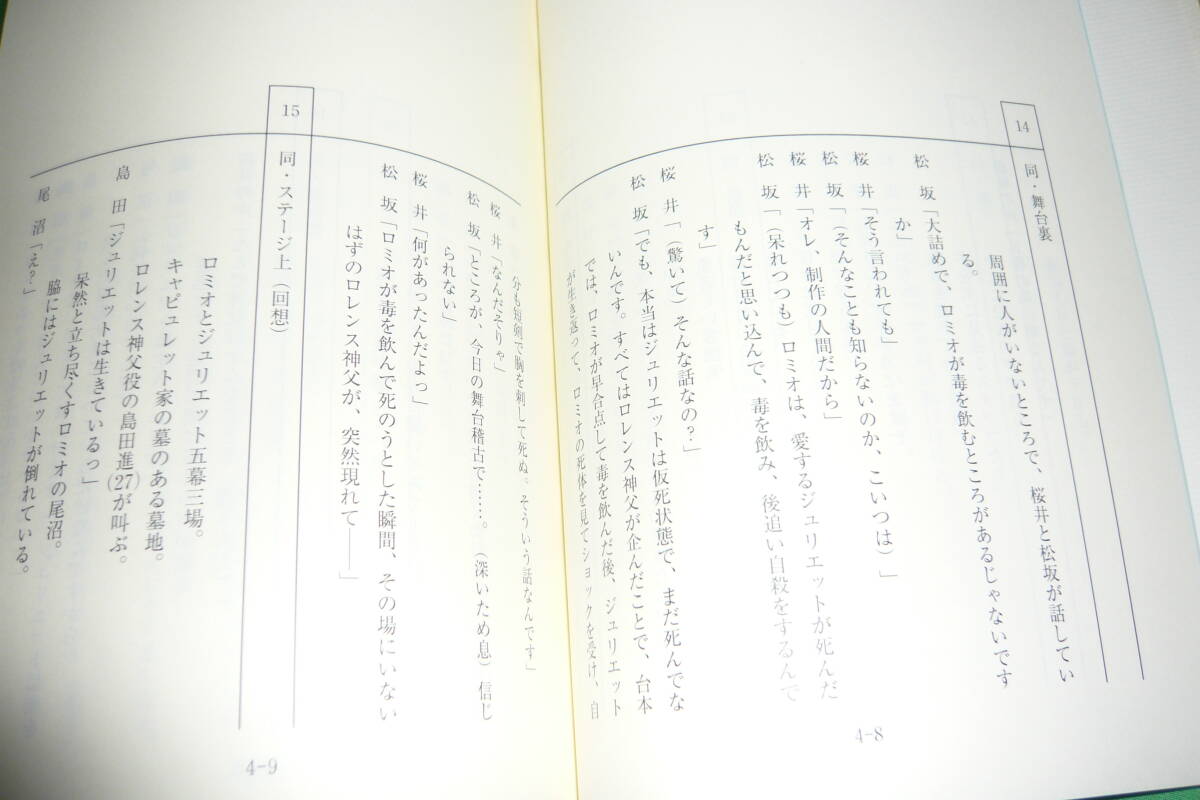 14
同・舞台裏
周囲に人がいないところで、桜井と松坂が話してい
る。
松　坂「大詰めで、ロミオが毒を飲むところがあるじゃないです
か」
桜　井「そう言われても」
松　坂「（そんなことも知らないのか、こいつは）」
桜　井「オレ、制作の人間だから」
松　坂「（呆れつつも）ロミオは、愛するジュリエットが死んだ
もんだと思い込んで、毒を飲み、後追い自殺をするんで
す」
桜　井「（驚いて）そんな話なの？」
松　坂「でも、本当はジュリエットは仮死状態で、まだ死んでな
いんです。すべてはロレンス神父が企んだことで、台本
では、ロミオが早合点して毒を飲んだ後、ジュリエット
が生き返って、ロミオの死体を見てショックを受け、自
4-8
分も短剣で胸を刺して死ぬ。そういう話なんです」
桜　井「なんだそりゃ」
松　坂「ところが、今日の舞台稽古で……。（深いため息）信じ
られない」
桜　井「何があったんだよっ」
松　坂「ロミオが毒を飲んで死のうとした瞬間、その場にいない
はずのロレンス神父が、突然現れて――」
15
同・ステージ上（回想）
ロミオとジュリエット五幕三場。
キャピュレット家の墓のある墓地。
ロレンス神父役の島田進(27)が叫ぶ。
島　田「ジュリエットは生きているっ」
呆然と立ち尽くすロミオの尾沼。
脇にはジュリエットが倒れている。
尾　沼「え？」
4-9